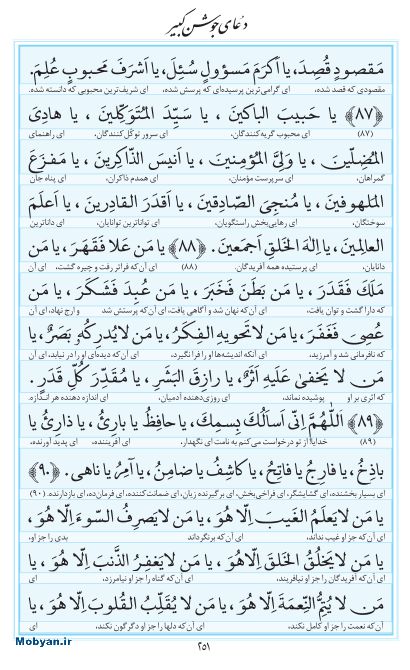 دعای جوشن کبیر
مَقصودٍ قُصِدَ، یا اَکرَمَ مَسؤولٍ سُئِلَ، یا اَشرَفَ مَحبوبٍ عُلِمَ.
مقصودی که قصد شده، ای گرامی‌ترین پرسیده‌ای که پرسش شده، ای شریف‌ترین محبوبی که دانسته شده.
﴿۸۷﴾ یا حَبیبَ الباکینَ، یا سَیِّدَ المُتَوَکِّلینَ، یا هادِیَ
(۸۷) ای محبوب گریه‌کنندگان، ای سرور توکّل کنندگان، ای راهنمای
المُضِلّینَ، یا وَلِیَّ المُؤمِنینَ، یا اَنیسَ الذّاکِرینَ، یا مَفزَعَ
گمراهان، ای سرپرست مؤمنان، ای همدم ذاکران، ای پناه جان
المَلهوفینَ، یا مُنجِیَ الصّادِقینَ، یا اَقدَرَ القادِرینَ، یا اَعلَمَ
سوختگان، ای رهایی‌بخش راستگویان، ای تواناترین توانایان، ای داناترین
العالِمینَ، یا اِلٰهَ الخَلقِ اَجمَعینَ. ﴿۸۸﴾ یا مَن عَلا فَقَهَرَ، یا مَن
دانایان، ای پرستیده همه آفریدگان. (۸۸) ای آن‌که فراتر رفت و چیره گشت، ای آن
مَلَکَ فَقَدَرَ، یا مَن بَطَنَ فَخَبَرَ، یا مَن عُبِدَ فَشَکَرَ، یا مَن
که دارا گشت و توان یافت، ای آن‌که نهان شد و آگاهی یافت، ای آن‌که پرستش شد و ارج نهاد، ای آن
عُصِیَ فَغَفَرَ، یا مَن لا تَحویهِ الفِکَرُ، یا مَن لا یُدرِکُهُ بَصَرٌ، یا
که نافرمانی شد و آمرزید، ای آنکه اندیشه‌ها او را فرا نگیرد، ای آن‌که دیده‌ای او را در نیابد، ای آن
مَن لا یَخفیٰ عَلَیهِ اَثَرٌ، یا رازِقَ البَشَرِ، یا مُقَدِّرَ کُلِّ قَدَرٍ.
که اثری بر او پوشیده نماند، ای روزی‌دهنده آدمیان، ای اندازه دهنده هر اندازه.
﴿۸۹﴾ اَللّٰهُمَّ اِنّی اَسأَلُکَ بِسمِکَ، یا حافِظُ یا بارِئُ، یا ذارِئُ یا
(۸۹) خدایا از تو درخواست می‌کنم به نامت ای نگهدار، ای آفریننده، ای پدید آورنده،
باذِخُ، یا فارِجُ یا فاتِحُ، یا کاشِفُ یا ضامِنُ، یا آمِرُ یا ناهی. ﴿۹۰﴾
ای بسیار بخشنده، ای گشایشگر، ای فراخی‌بخش، ای برگیرنده زیان، ای ضمانت‌کننده، ای فرمان‌ده، ای بازدارنده. (۹۰)
یا مَن لا یَعلَمُ الغَیبَ اِلّا هُوَ، یا مَن لا یَصرِفُ السّوءَ اِلّا هُوَ،
ای آن‌که جز او غیب نداند، ای آن‌که برنگرداند بدی را جز او،
یا مَن لا یَخلُقُ الخَلقَ اِلّا هُوَ، یا مَن لا یَغفِرُ الذَّنبَ اِلّا هُوَ، یا
ای آن‌که آفریدگان را جز او نیافریند، ای آن‌که گناه را جز او نیامرزد، ای
مَن لا یُتِمُّ النِّعمَةَ اِلّا هُوَ، یا مَن لا یُقَلِّبُ القُلوبَ اِلّا هُوَ، یا
آن‌که نعمت را جز او کامل نکند، ای آن‌که دلها را جز او دگرگون نکند، ای
۲۵۱
Mobyan.ir